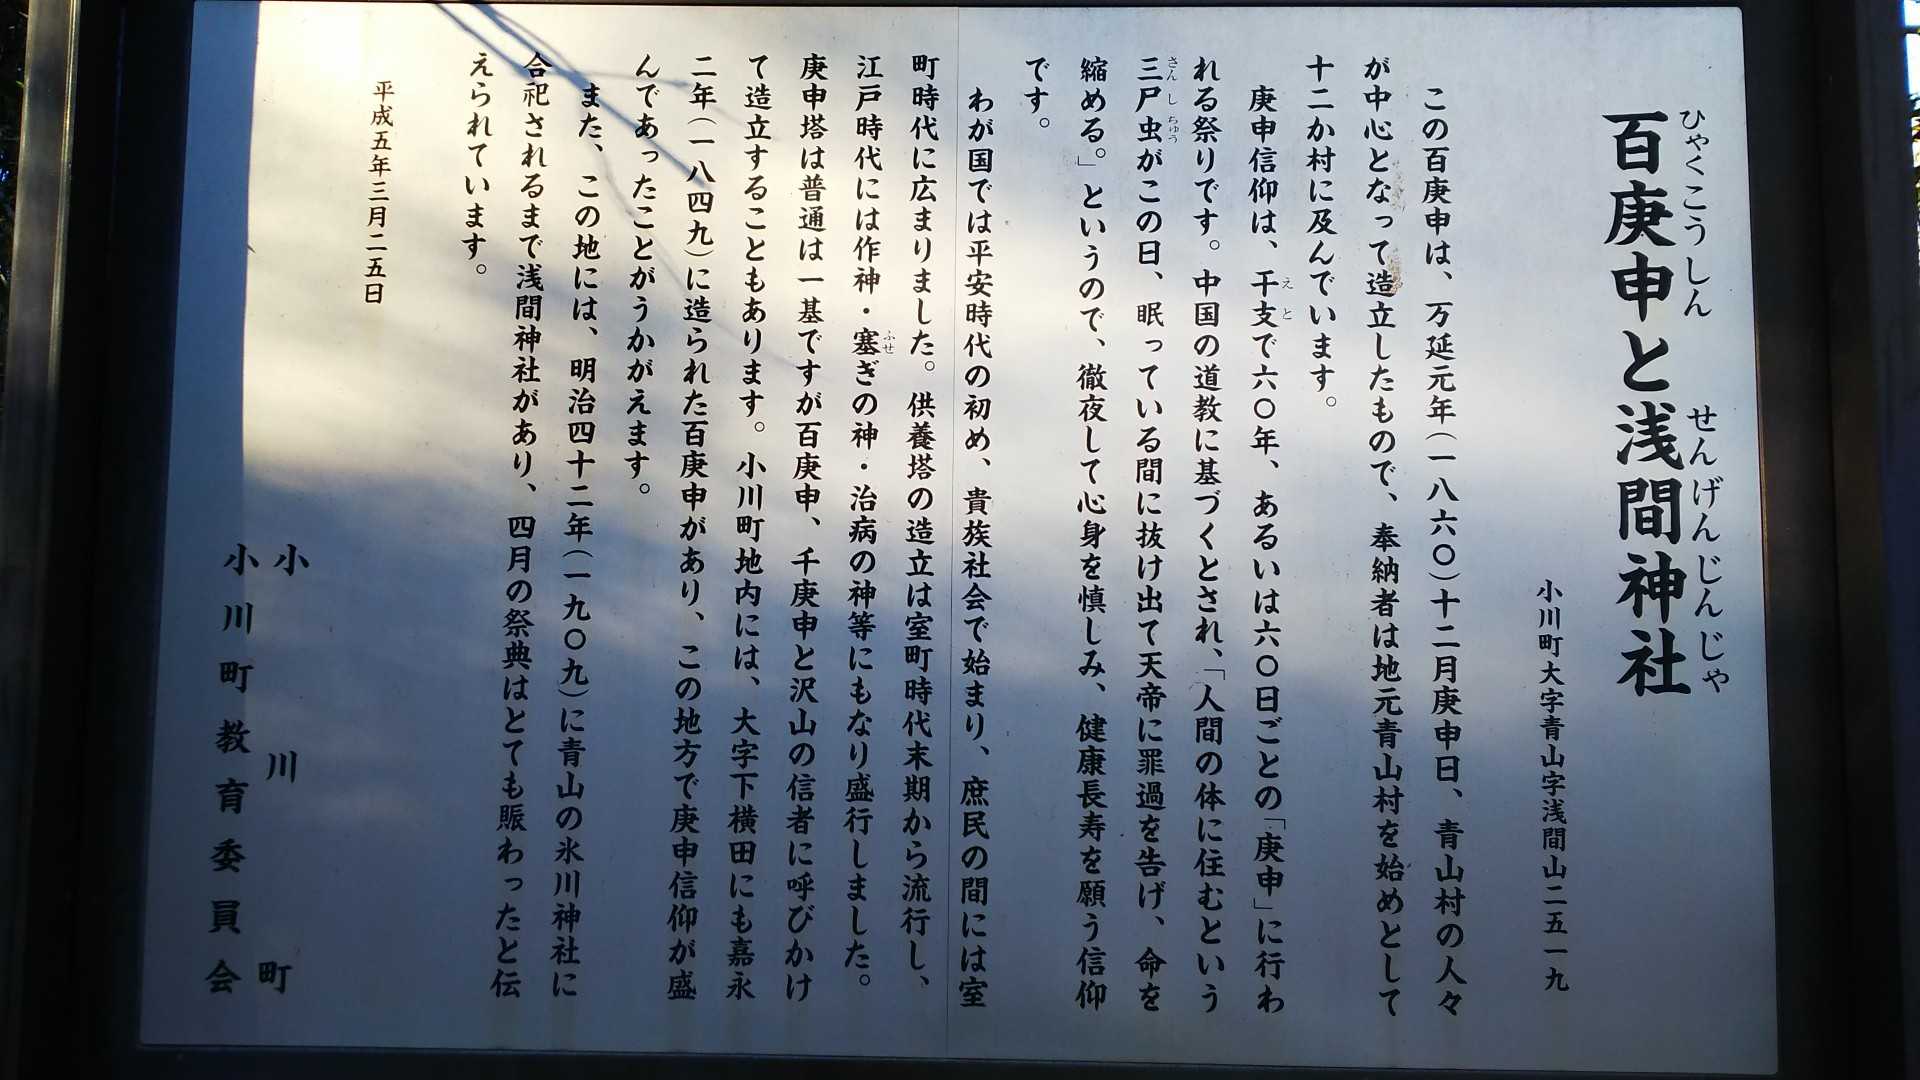 百庚申と浅間神社
ひゃくこうしん せんげんじんじゃ
小川町大字青山字浅間山二五一九
この百庚申は、万延元年(一八六〇)十二月庚申日、青山村の人々
が中心となって造立したもので、奉納者は地元青山村を始めとして
十二か村に及んでいます。
庚申信仰は、干支で六〇年、あるいは六〇日ごとの「庚申」に行わ
えと
れる祭りです。中国の道教に基づくとされ、「人間の体に住むという
三尸虫がこの日、眠っている間に抜け出て天帝に罪過を告げ、命を
さんしちゅう
縮める。」というので、徹夜して心身を慎しみ、健康長寿を願う信仰
です。
わが国では平安時代の初め、貴族社会で始まり、庶民の間には室
町時代に広まりました。供養塔の造立は室町時代末期から流行し、
江戸時代には作神・塞ぎの神・治病の神等にもなり盛行しました。
ふせ
庚申塔は普通は一基ですが百庚申、千庚申と沢山の信者に呼びかけ
て造立することもあります。小川町地内には、大字下横田にも嘉永
二年(一八四九)に造られた百庚申があり、この地方で庚申信仰が盛
んであったことがうかがえます。
また、この地には、明治四十二年(一九〇九)に青山の氷川神社に
合祀されるまで浅間神社があり、四月の祭典はとても賑わったと伝
えられています。
平成五年三月二五日
小川町
小川町教育委員会